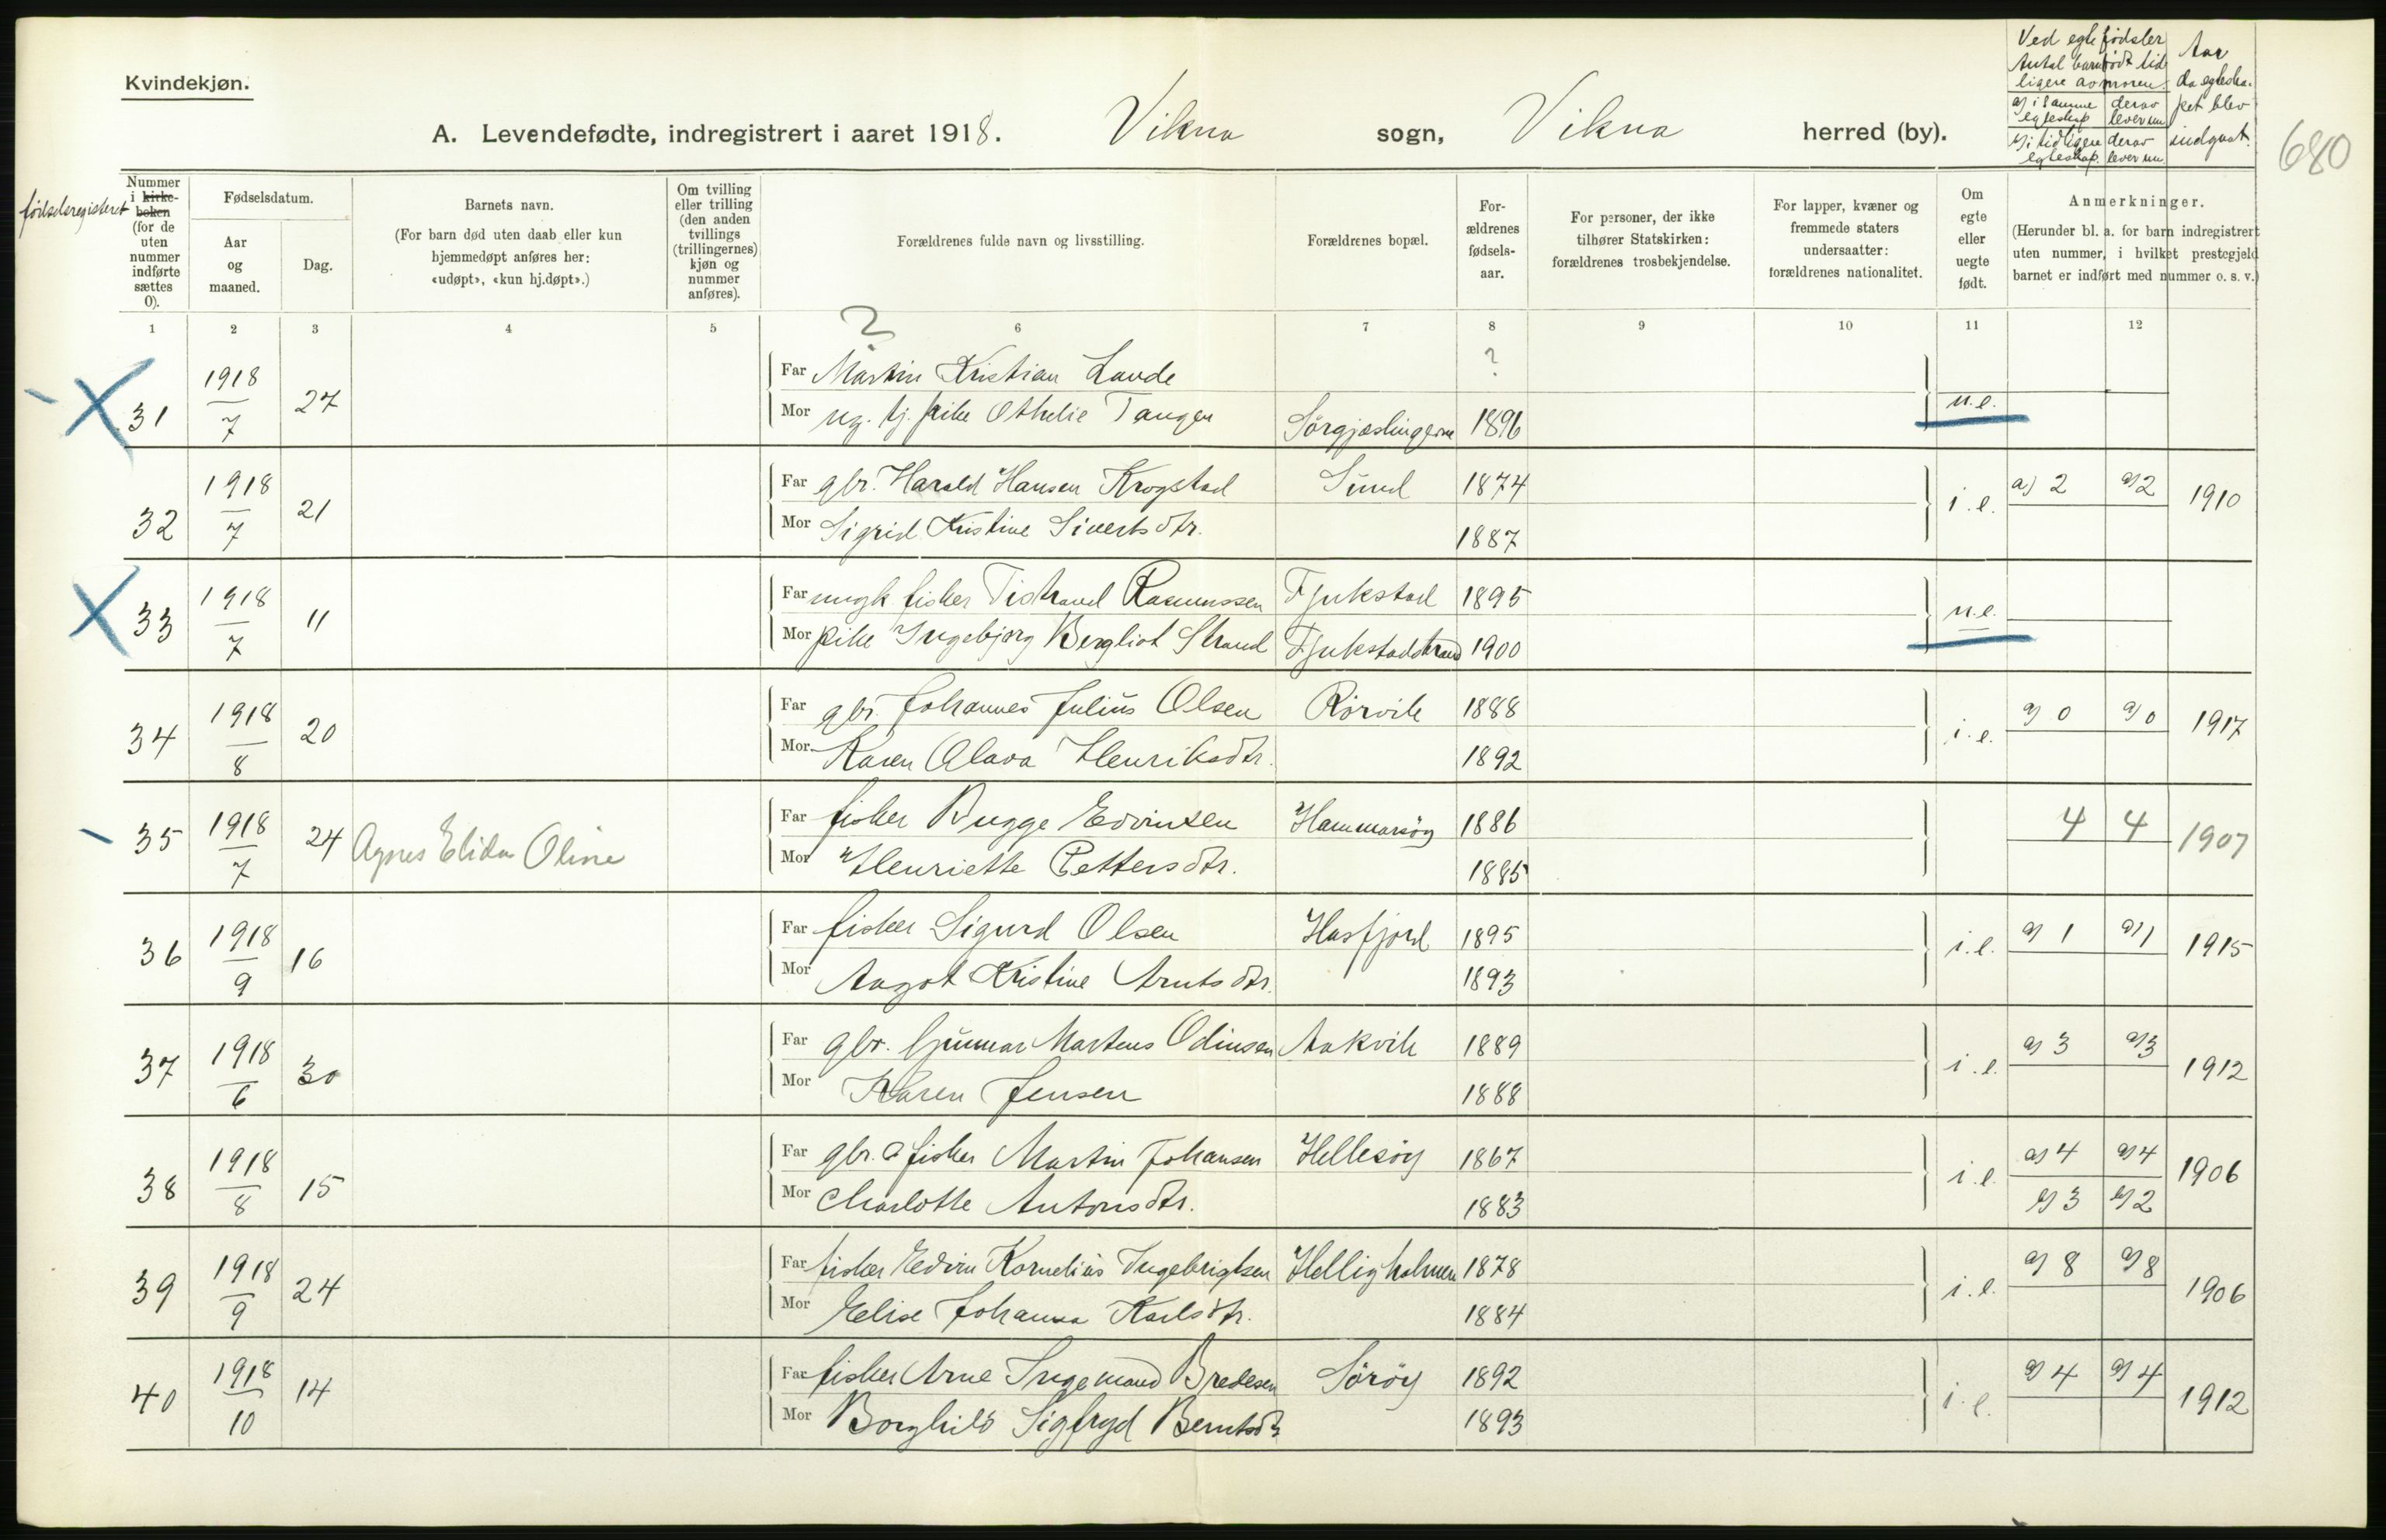 Kvindekjøn.
A. Levendefødte, indregistrert i aaret 1918. Vikna sogn, Vikna herred (by).
Ved egte fødsler
Antal barn født tid
ligere av moren.
a) i samme egteskap
derav lever nu
b) i tidligere egteskap.
derav lever nu
Aar
da egteska-
pet blev
indgaat.
680
fødselsregisteret
Nummer
i kirke-
boken
(for de
uten
nummer
indførte
sættes
0).
Fødselsdatum.
Aar
og
maaned.
Dag.
Barnets navn.
(For barn død uten daab eller kun
hjemmedøpt anføres her:
«udøpt», «kun hj.døpt».)
Om tvilling
eller trilling
(den anden
tvillings
(trillingernes)
kjøn og
nummer
anføres).
Forældrenes fulde navn og livsstilling.
Forældrenes bopæl.
For-
ældrenes
fødsels-
aar.
For personer, der ikke
tilhører Statskirken:
forældrenes trosbekjendelse.
For lapper, kvæner og
fremmede staters
undersaatter:
forældrenes nationalitet.
Om
egte
eller
uegte
født.
Anmerkninger.
(Herunder bl. a. for barn indregistrert
uten nummer, i hvilket prestegjeld
barnet er indført med nummer o. s. v.)
1 2 3 4 5 6 7 8 9 10 11 12
?
31 1918/7 27
Far Martin Kristian Lande ?
Mor ug. tj. pike Othelie Tangen Sørgjæslingerne 1896 u.e.
32 1918/7 21
Far gbr. Harald Hansen Krogstad Sund 1874 i.e. a) 2 a) 2 1910
Mor Sigrid Kristine Sivertsdtr. 1887
33 1918/7 11
Far ungk fisker Tidstrand Rasmussen Fjukstad 1895 u.e.
Mor pike Ingebjørg Bergliot Strand Fjukstadstrand 1900
34 1918/8 20
Far gbr. Johannes Julius Olsen Rørvik 1888 i.e. a) 0 a) 0 1917
Mor Karen Olava Henriksdtr. 1892
35 1918/7 24 Agnes Elida Oline
Far fisker Bugge Edvinsen Hammarsøy 1886 4 4 1907
Mor Henriette Pettersdtr. 1885
36 1918/9 16
Far fisker Sigurd Olsen Hasfjord 1895 i.e. a) 1 a) 1 1915
Mor Aagot Kristine Arntsdtr. 1893
37 1918/6 30
Far gbr. Gunnar Martens Odinsen Aakvik 1889 i.e. a) 3 a) 3 1912
Mor Karen Jensen 1888
38 1918/8 15
Far gbr. & fisker Martin Johansen Hellesøy 1867 i.e. a) 4 a) 4 1906
Mor Charlotte Antonsdtr. 1883 b) 3 b) 2
39 1918/9 24
Far fisker Edvin Kornelius Ingebrigtsen Helligholmen 1878 i.e. a) 8 a) 8 1906
Mor Elise Johanna Karlsdtr. 1884
40 1918/10 14
Far fisker Arne Ingemand Bredesen Sørøy 1892 i.e. a) 4 a) 4 1912
Mor Borghild Sigfryd Berntsdtr 1893